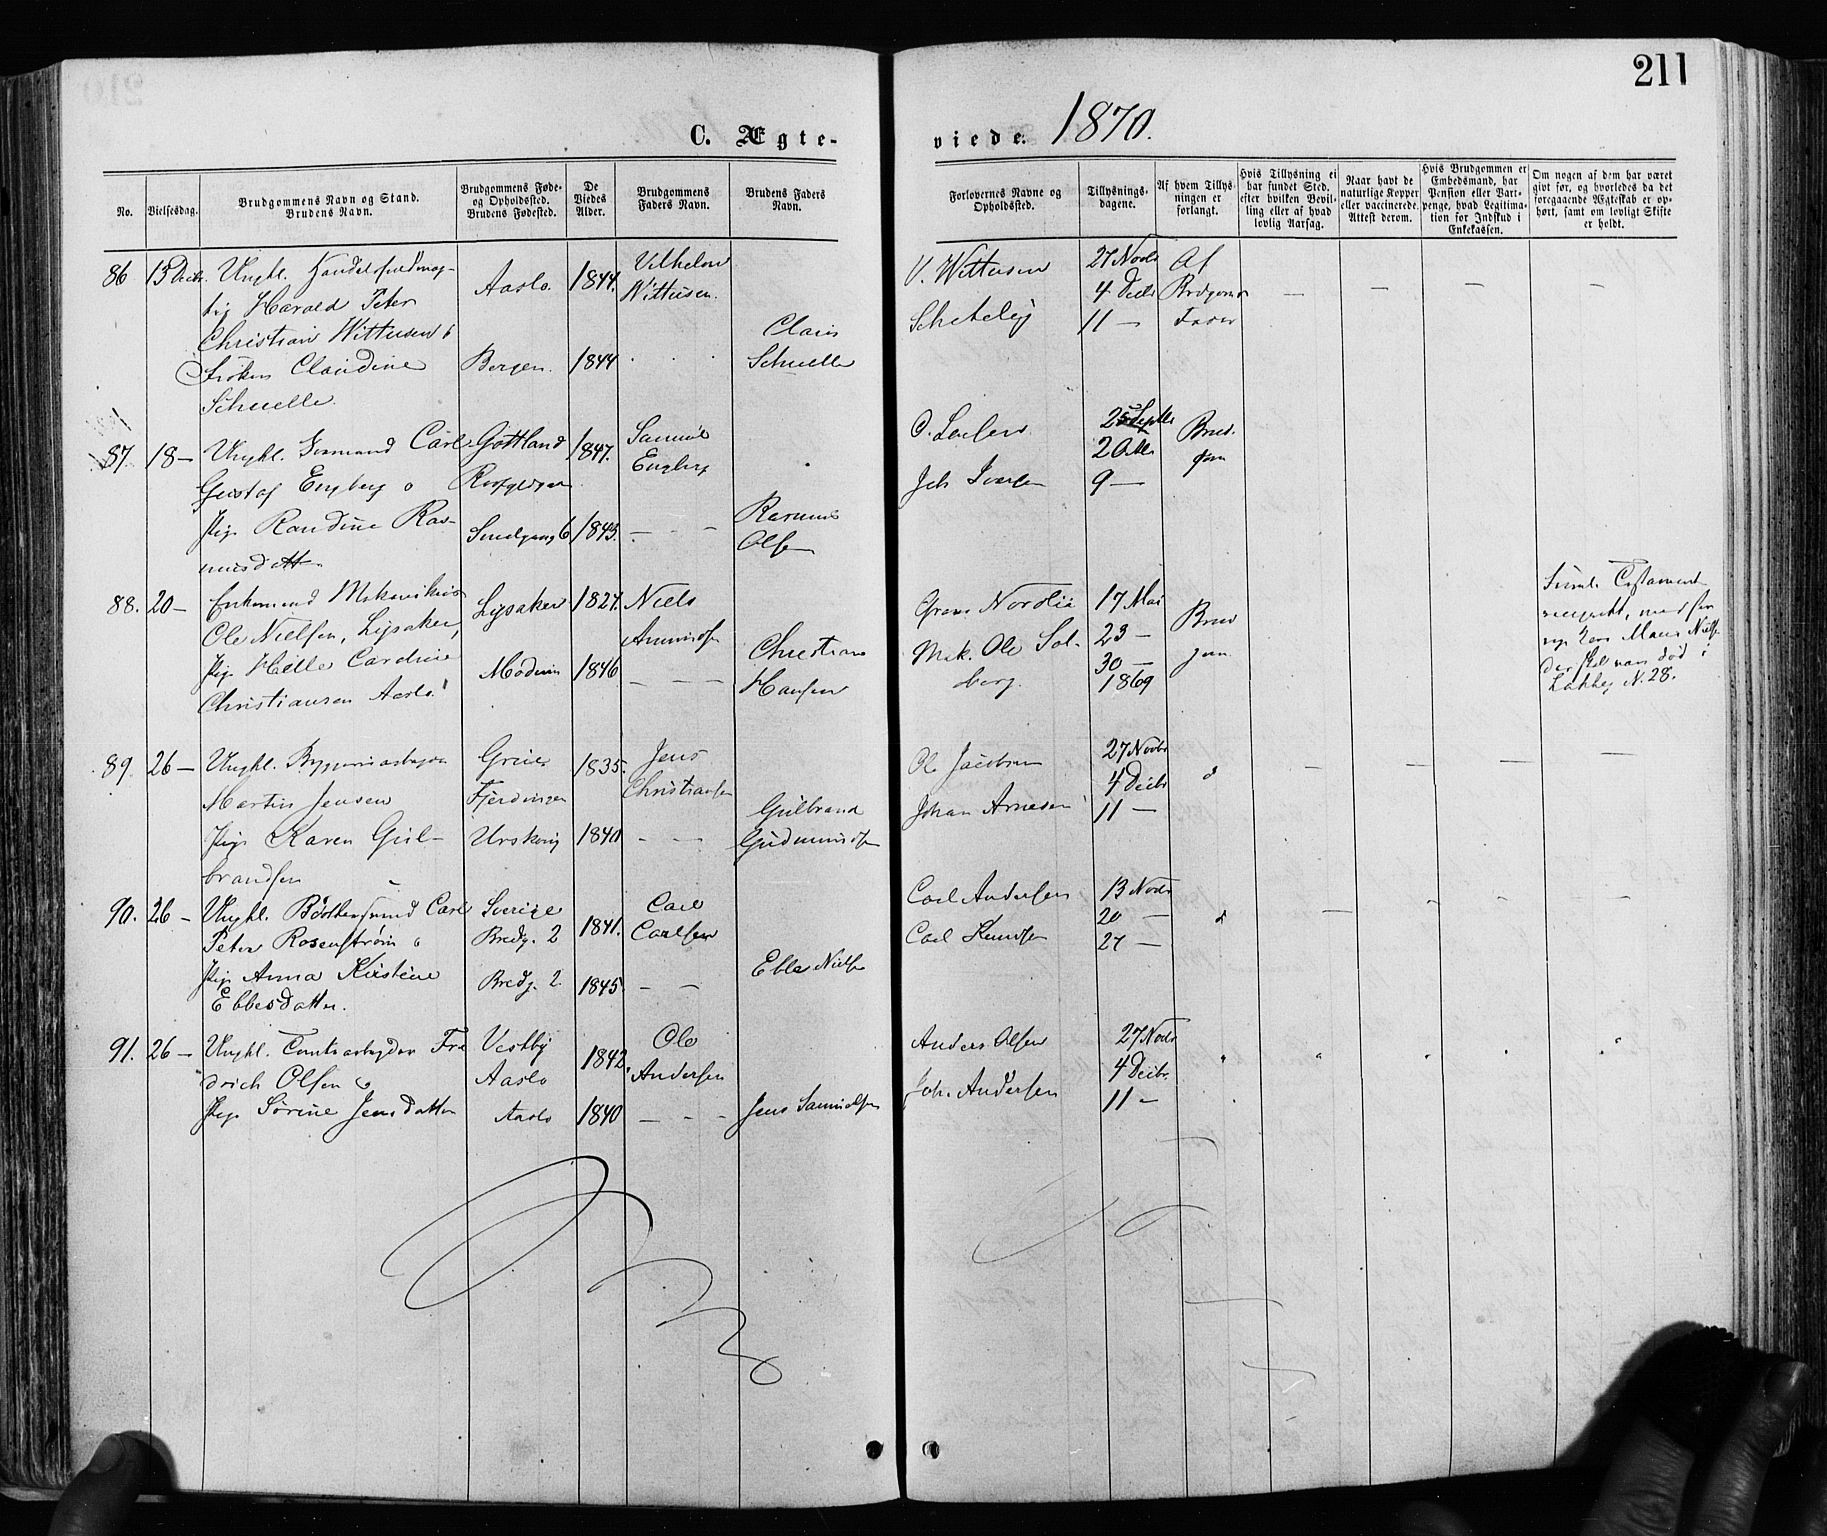 211
C. Ægte-
viede. 1870.
No.
Vielsesdag.
Brudgommens Navn og Stand.
Brudens Navn.
Brudgommens Føde-
og Opholdsted.
Brudens Fødested.
De
Viedes
Alder.
Brudgommens
Faders Navn.
Brudens Faders
Navn.
Forlovernes Navne og
Opholdsted.
Tillysnings-
dagene.
Af hvem Tillys-
ningen er
forlangt.
Hvis Tillysning ei
har fundet Sted,
efter hvilken Bevil-
ling eller af hvad
lovlig Aarsag.
Naar havt de
naturlige Kopper
eller vaccinerede.
Attest derom.
Hvis Brudgommen er
Embedsmand, har
Pension eller Vart-
penge, hvad Legitima-
tion for Indskud i
Enkekassen.
Om nogen af dem har været
gift før, og hvorledes da det
foregaaende Ægteskab er op-
hørt, samt om lovligt Skifte
er holdt.
86 13 Decbr. Ungkl. Handelsfuldmæg-
tig Harald Peter
Christian Wittusen &
Frøken Claudine
Schuelle.
Aaslo
Bergen.
1844.
1844
Vilhelm
Wittusen.
Claus
Schuelle
V. Wittusen
Schetelig
27 Novbr
4 Decbr
11 —
Af
Brdgoms
Fader
87. 18 — Ungkl. Carl
Gustaf Engberg o
Pige Randine Ras-
musdatt
Gottland
1847.
1843.
Samuel
Engberg
Rasmus
Olsen
Joh Iversen
25 Septbr
2 Octbr
9 —
Brud-
gom
88. 20 — Enkemand
Ole Nielsen, Lysaker,
Pige Helle Cardine
Christiansen Aaslo.
Lysaker
Modum
1827.
1846
Niels
Amundsen
Christian
Hansen
Nordlie
Mek. Ole Sol-
berg.
17 Mai
23 —
30 —
1869
Brud
gom
Testament
Maus Nielsen
død i
N. 28.
89. 26 — Ungkl. Bygningsarbeider
Martin Jensen
Pige Karen Gul-
brandsen
Grue
Fjerdingen
Urskoug
1835.
1840
Jens
Christiansen
Gulbrand
Gudmundsen
Ole Jacobsen
Johan Arnesen
27 Novbr
4 Decbr
11 —
90. 26 — Ungkl. Bødkersvend Carl
Peter Rosenstrøm o
Pige Anna Kirstine
Ebbesdatter.
Sverige
Bredg. 2
Bredg. 2
1841.
1845.
Carl
Carlsen
Ebbe Nielsen
Carl Andersen
Carl Knudsen
13 Novbr
20 —
27 —
91. 26 — Ungkl. Tomtearbeider Fre
drich Olsen o
Pige Sørine Jensdatter
Vestby
Aaslo
Aaslo
1842.
1840
Ole
Andersen
Jens Samuelsen
Anders Olsen
Joh. Andersen
27 Novbr
4 Decbr.
11 —